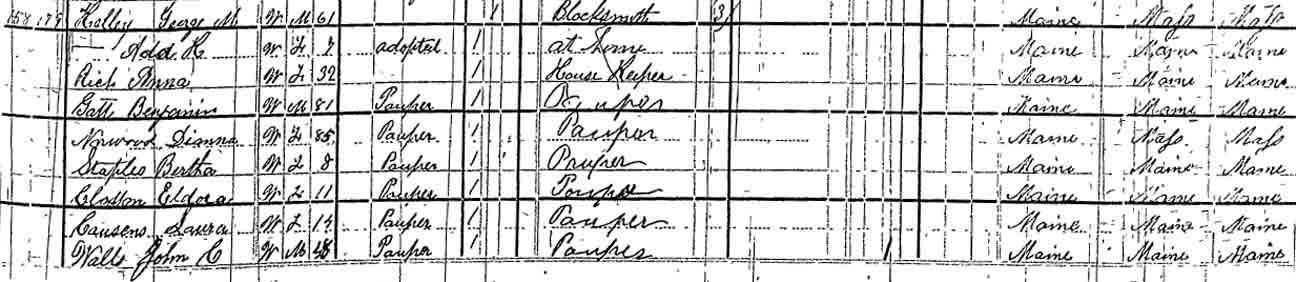 158 179 George M W M 61 1 Blacksmith 3 Maine Mass Mass
— Add H W F 7 adopted 1 at home Maine Maine Maine
Rich Anna W F 32 1 House Keeper Maine Maine Maine
Gatt Benjamin W M 81 Pauper 1 Pauper Maine Maine Maine
Norwood Dianna W F 85 Pauper 1 Pauper Maine Mass Mass
Staples Bertha W F 8 Pauper 1 Pauper Maine Maine Maine
Closson Eldora W F 11 Pauper 1 Pauper Maine Maine Maine
Causens Laura W F 14 Pauper 1 Pauper Maine Maine Maine
Walls John C W M 48 Pauper 1 Pauper 1 Maine Maine Maine